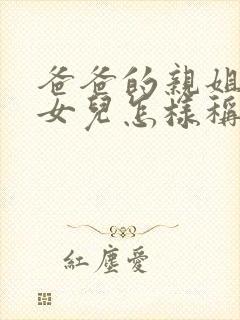 爸爸的親姐
女兒怎樣稱
紅塵愛